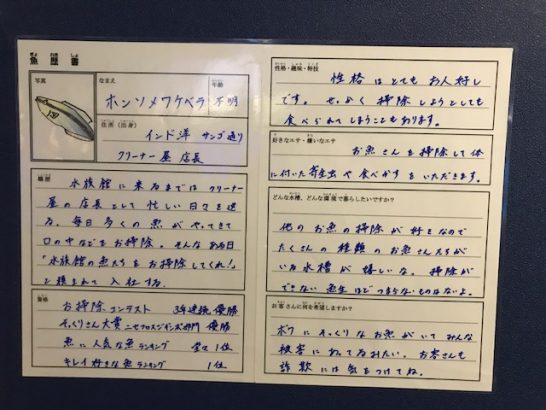 魚歴書
写真
なまえ
ホンソメワケベラ
年齢
不明
住所(出身)
インド洋 サンゴ通り
クリーナー屋 店長
職歴
水族館に来るまではクリーナー
屋の店長として忙しい日々を送
る。毎日多くの魚がやってきて
口の中などをお掃除。そんなある日
「水族館の魚たちをお掃除してくれ!」
と頼まれて入社する。
資格
お掃除コンテスト 3年連続優勝
そっくりさん大賞ニセクロスジギンポ部門 優勝
魚に人気な魚ランキング 堂々1位
キレイ好きな魚ランキング 1位
性格・趣味・特技
性格はとてもお人好し
です。せっかく掃除しようとしても
食べられてしまうこともあります。
好きなエサ・嫌いなエサ
お魚さんを掃除して体
に付いた寄生虫や食べかすをいただきます。
どんな水槽、どんな環境で暮らしたいですか?
他のお魚の掃除が好きなので
たくさんの種類のお魚さんたちが
いる水槽が嬉しいな。掃除が
できない魚生ほどつまらないものはないよ。
お客さんに何を希望しますか?
ボクにそっくりなお魚がいてみんな
被害にあってるみたい。お客さんも
詐欺には気をつけてね。